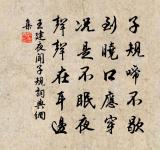 子規啼不歇
到曉口應穿
況是不眠夜
聲聲在耳邊
王建夜聞子規詞典網
集